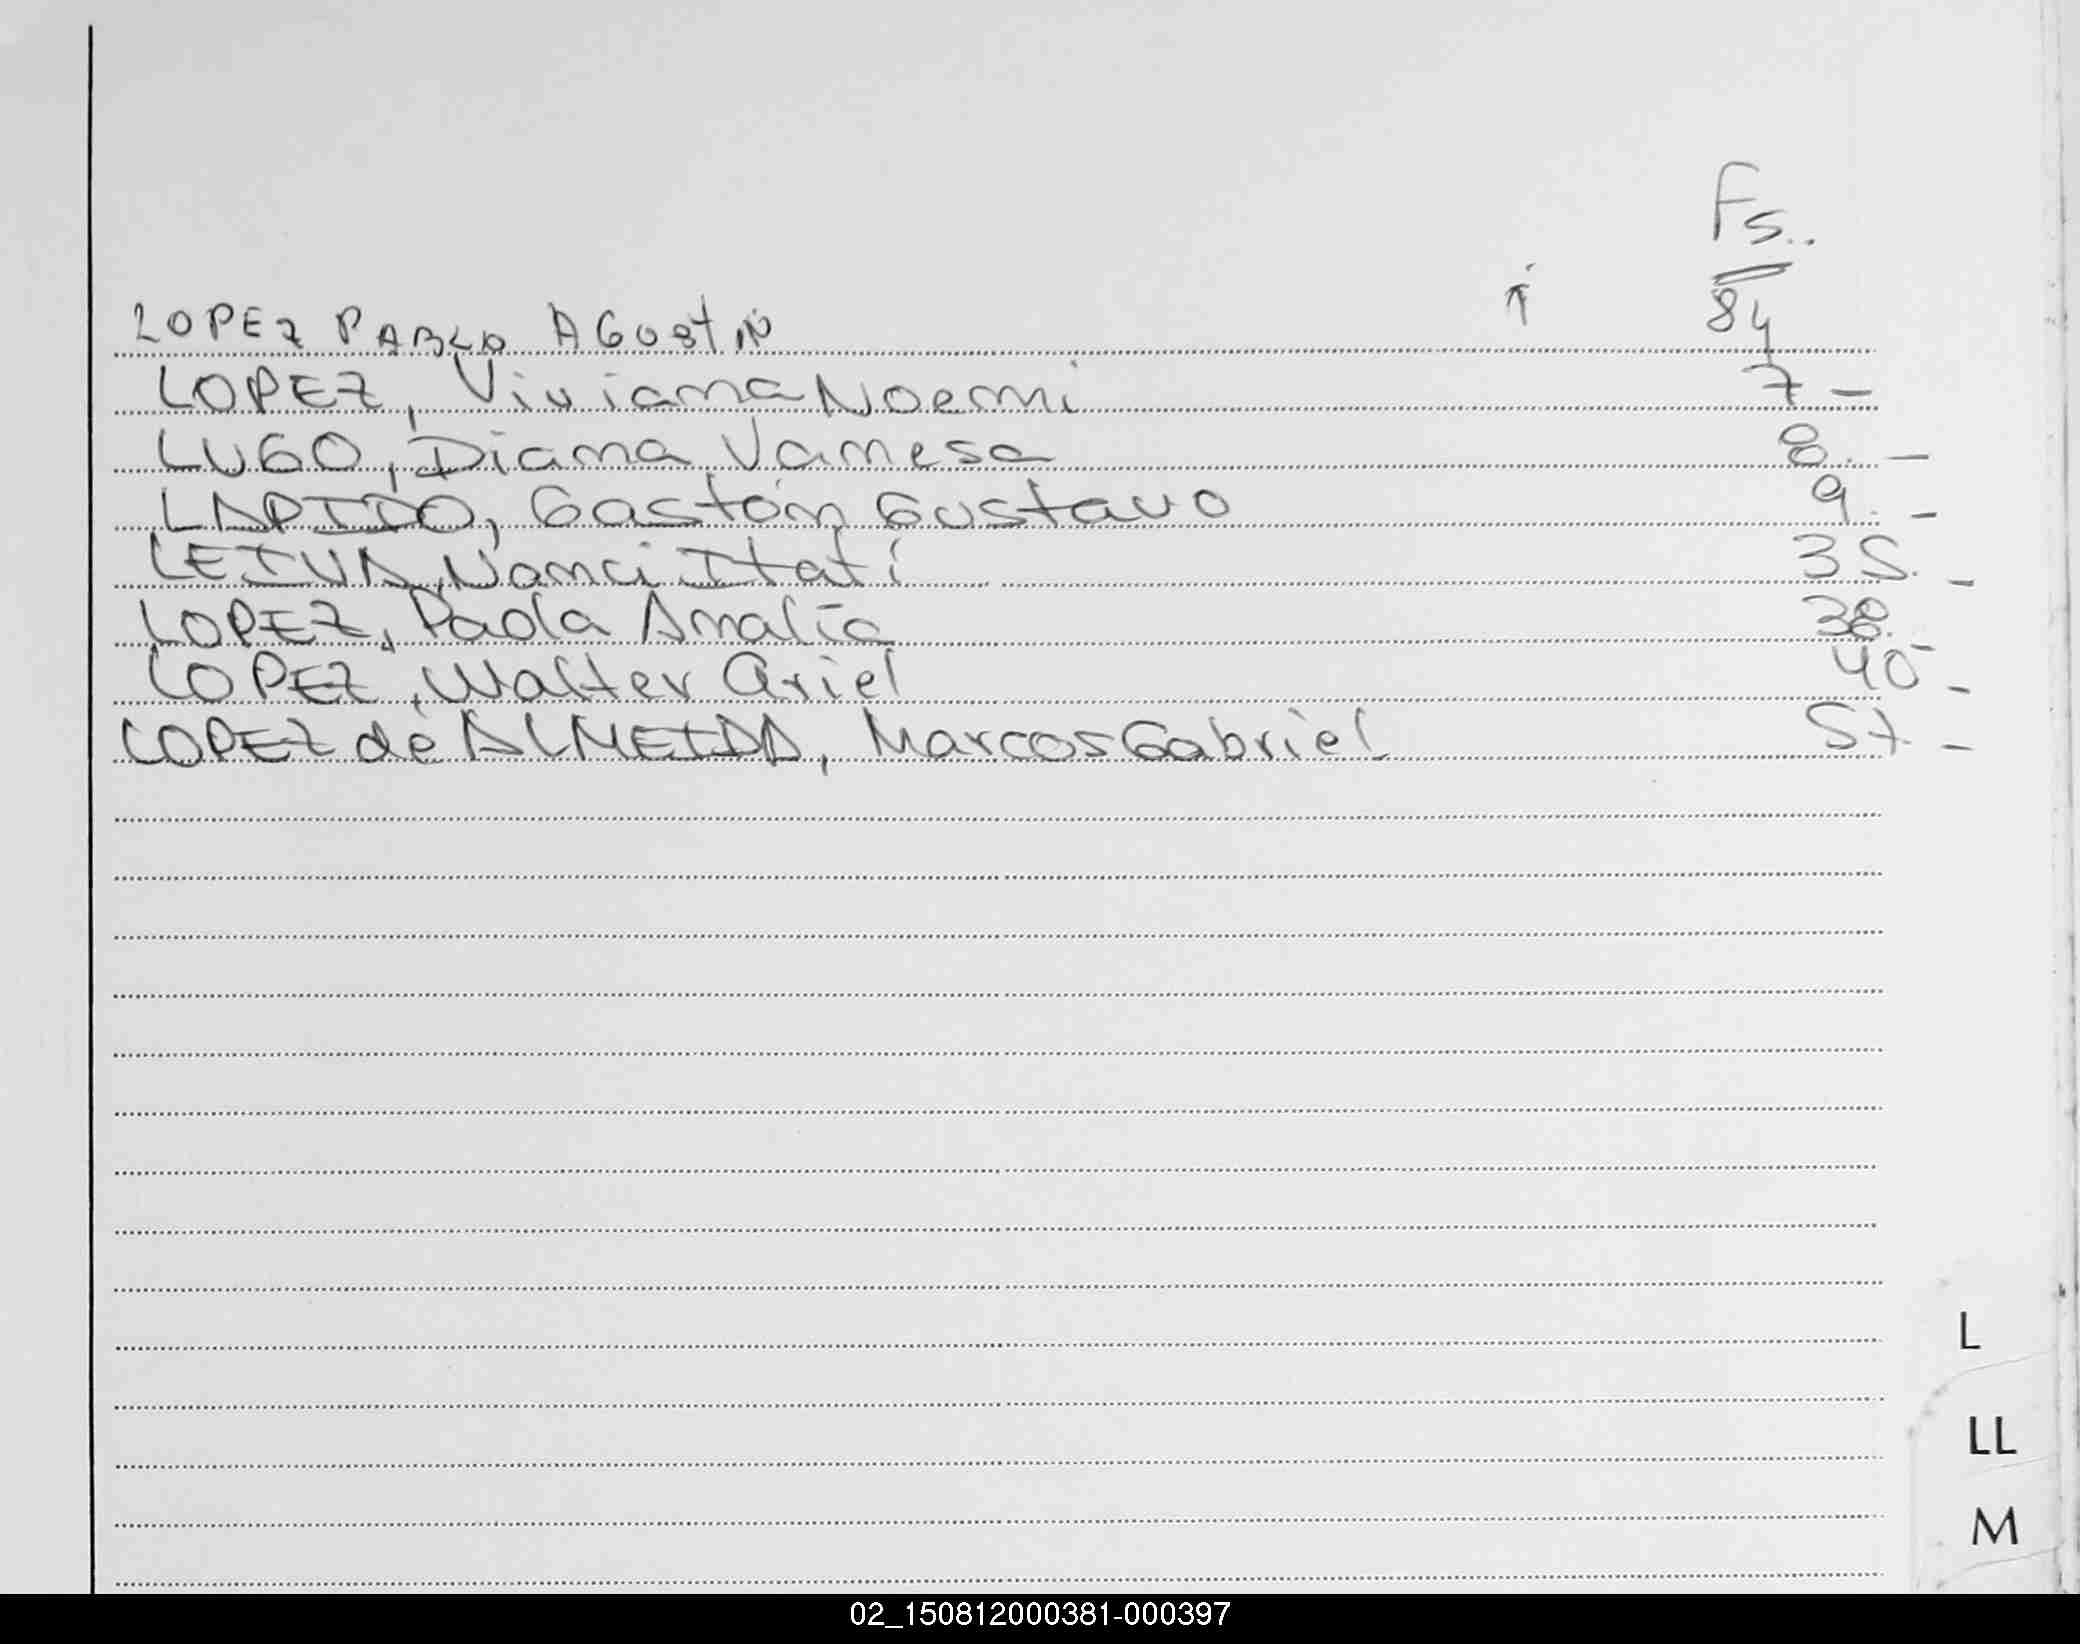 Fs..
LOPEZ PABLO AGUSTIN 84
LOPEZ, Viviana Noemi 7 -
LUGO, Diana Vanesa 8. -
LAPIDO, Gastón Gustavo 9. -
LEIVA, Nanci Itatí 35. -
LOPEZ, Paola Amalia 38. -
LOPEZ, Walter Ariel 40 -
LOPEZ de ALMEIDA, Marcos Gabriel -
L
LL
M
02_150812000381-000397